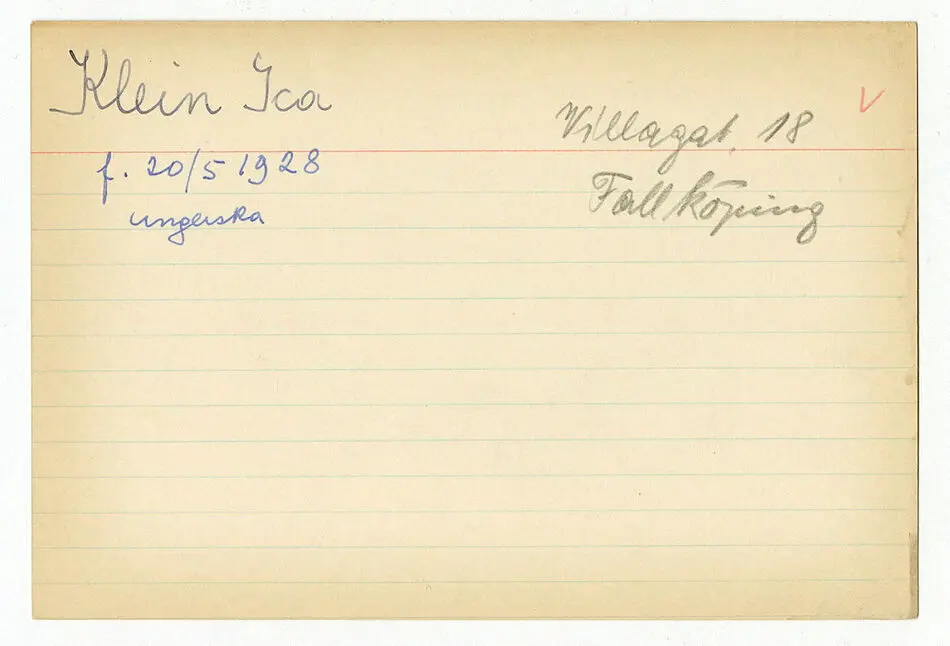 Klein Ica
Villagat. 18
f. 20/5 1928
Fallköping
ungerska